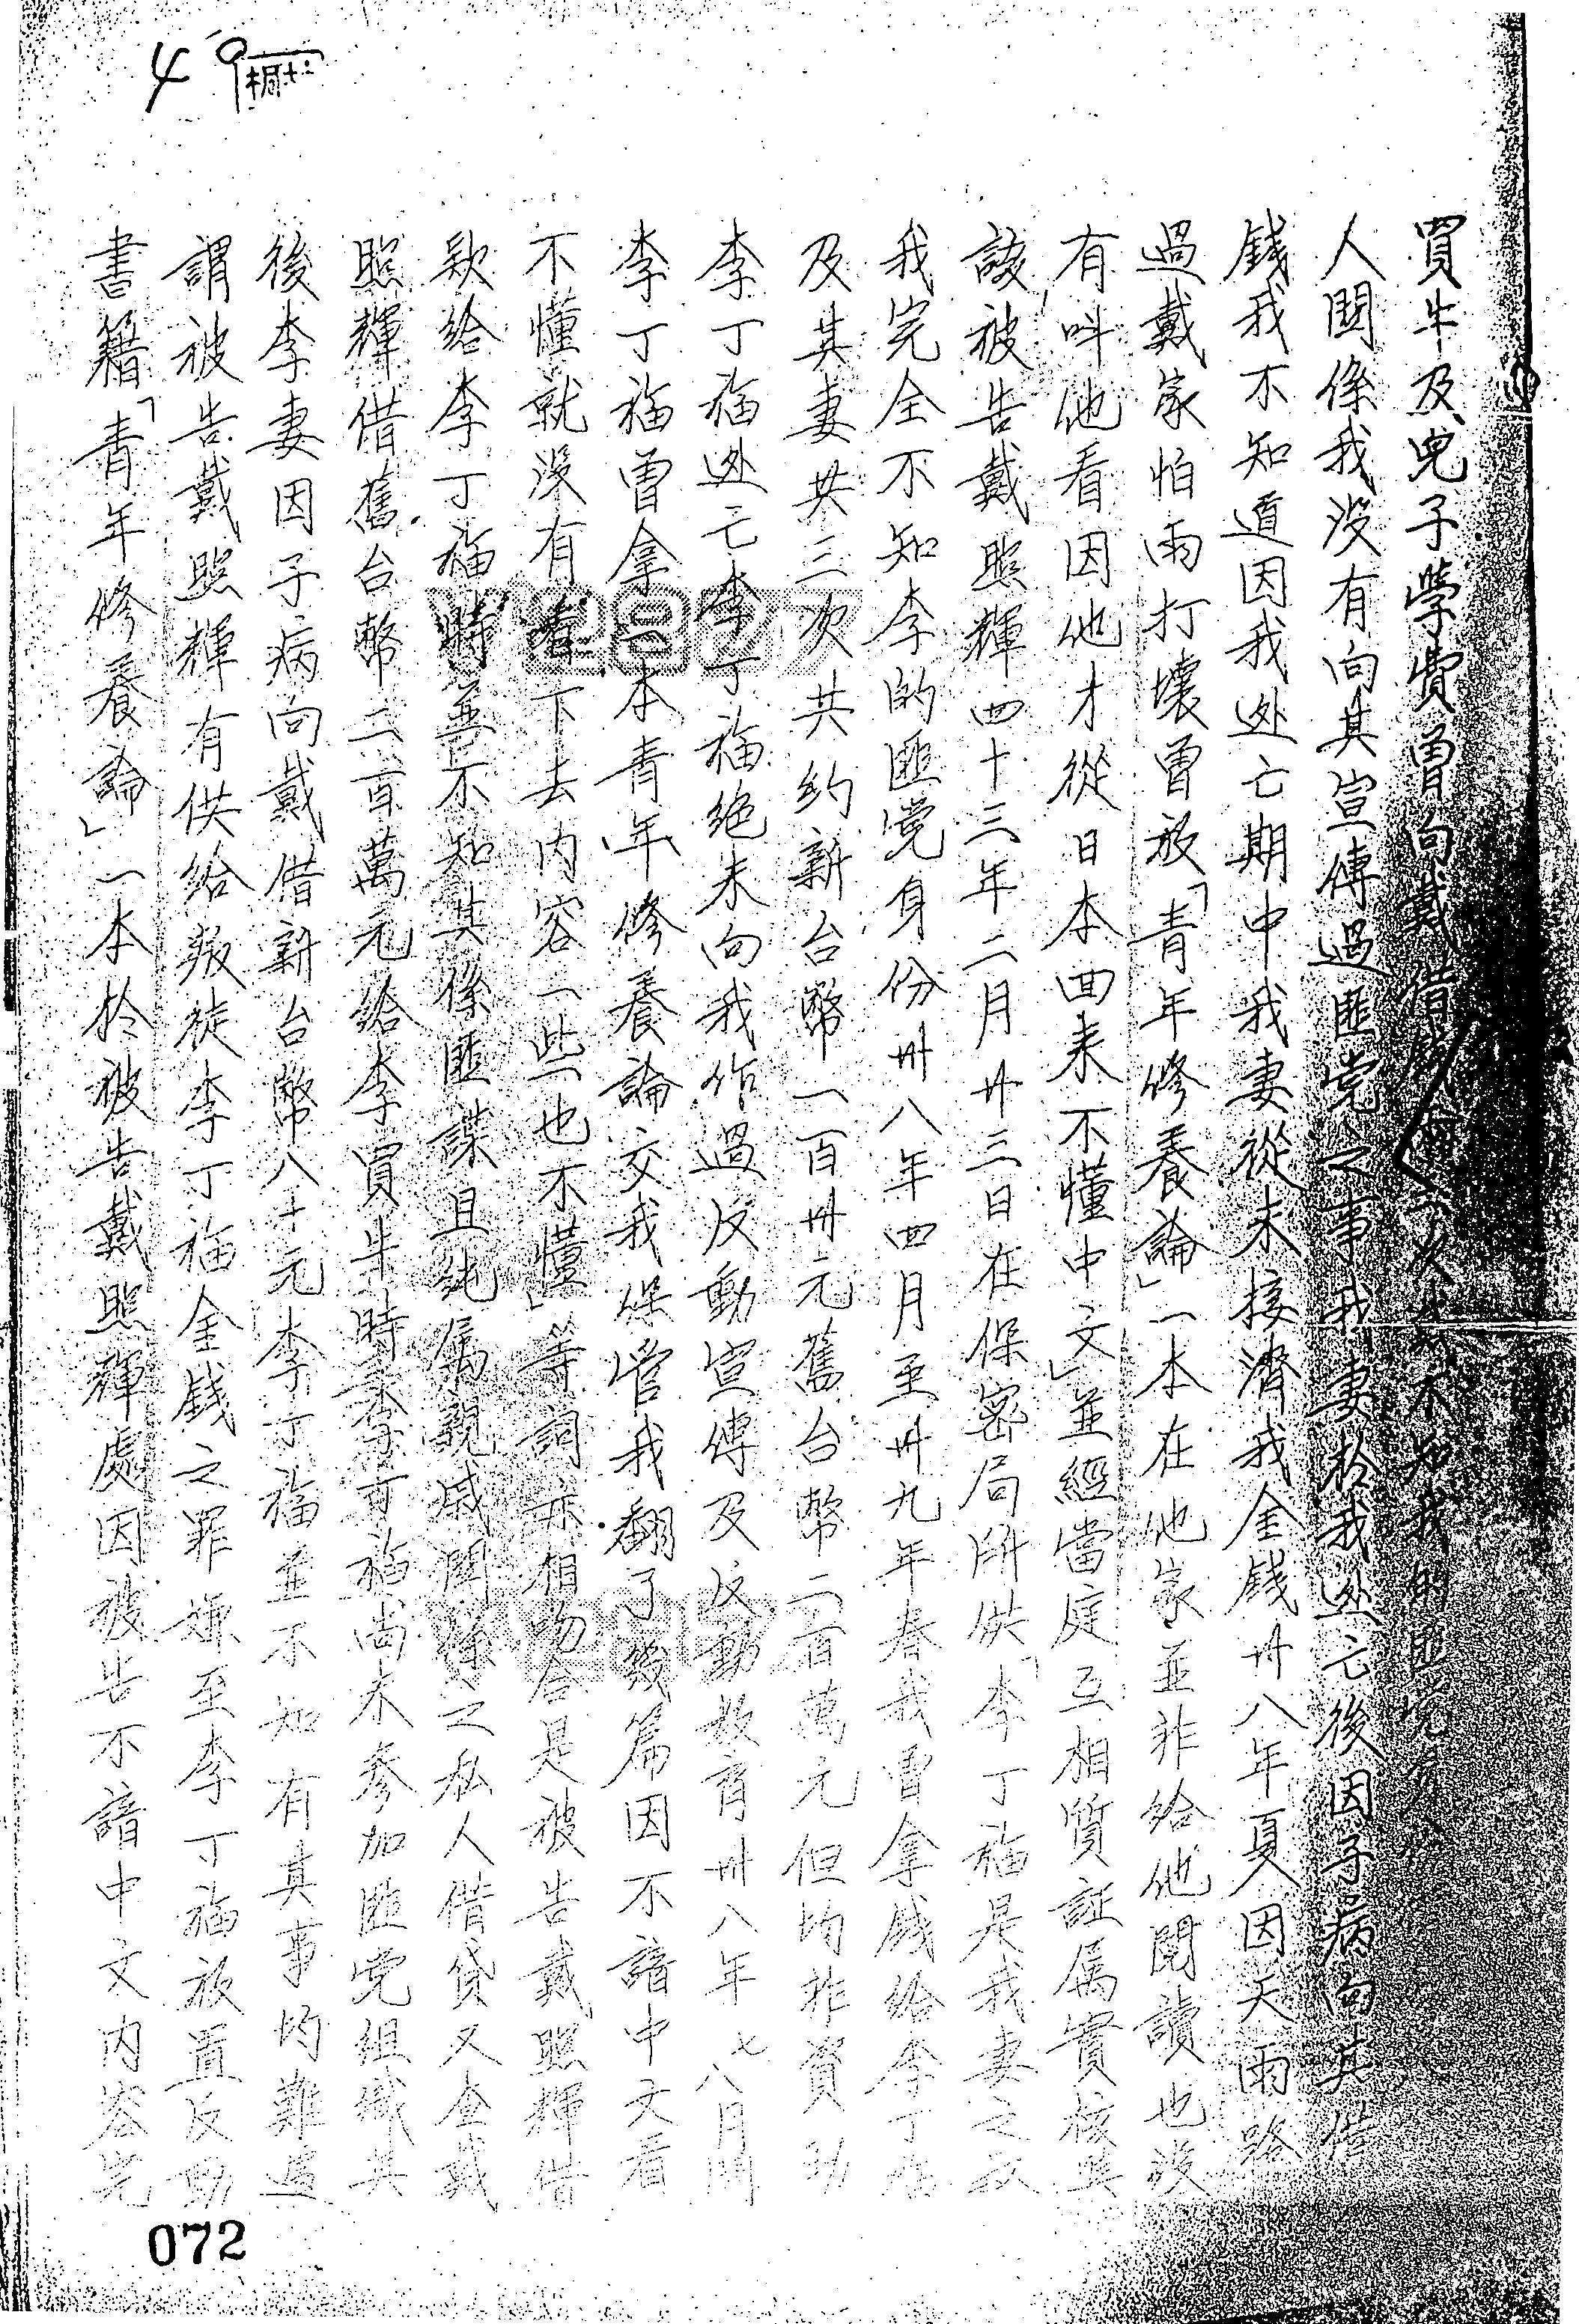 49
買牛及兒子學費曾向戴借錢二次戴不知我的匪党身份
人関係我没有向其宣傳過匪党之事我妻於我逃亡後因子病向其借
錢我不知道因我逃亡期中我妻從未接濟我金錢卅八年夏因天雨路
過戴家怕雨打壞曾放「青年修養論」一本在他家並非給他閱讀也没
有叫他看因他才從日本回來不懂中文」並經當庭互相質証属實核與
該被告戴照輝四十三年二月廿三日在保密局所供「李丁福是我妻之叔
我完全不知李的匪党身份卅八年四月至卅九年春我曾拿錢給李丁福
及其妻共三次共約新台幣一百卅元舊台幣二百萬元但均非資助
李丁福逃亡李丁福絶未向我作過反動宣傳及反動教育卅八年七八月間
李丁福曾拿一本青年修養論交我保管我翻了幾篇因不諳中文看
不懂就没有看下去内容一些也不懂」等詞亦相吻合是被告戴照輝借
款給李丁福時並不知其係匪諜且純属親戚関係之私人借貸又查戴
照輝借舊台幣二百萬元給李買牛時李丁福尚未參加匪党組織其
後李妻因子病向戴借新台幣八十元李丁福並不知有其事均難遽
謂被告戴照輝有供給叛徒李丁福金錢之罪嫌至李丁福放置反動
書籍「青年修養論」一本於被告戴照輝處因被告不諳中文内容完
072